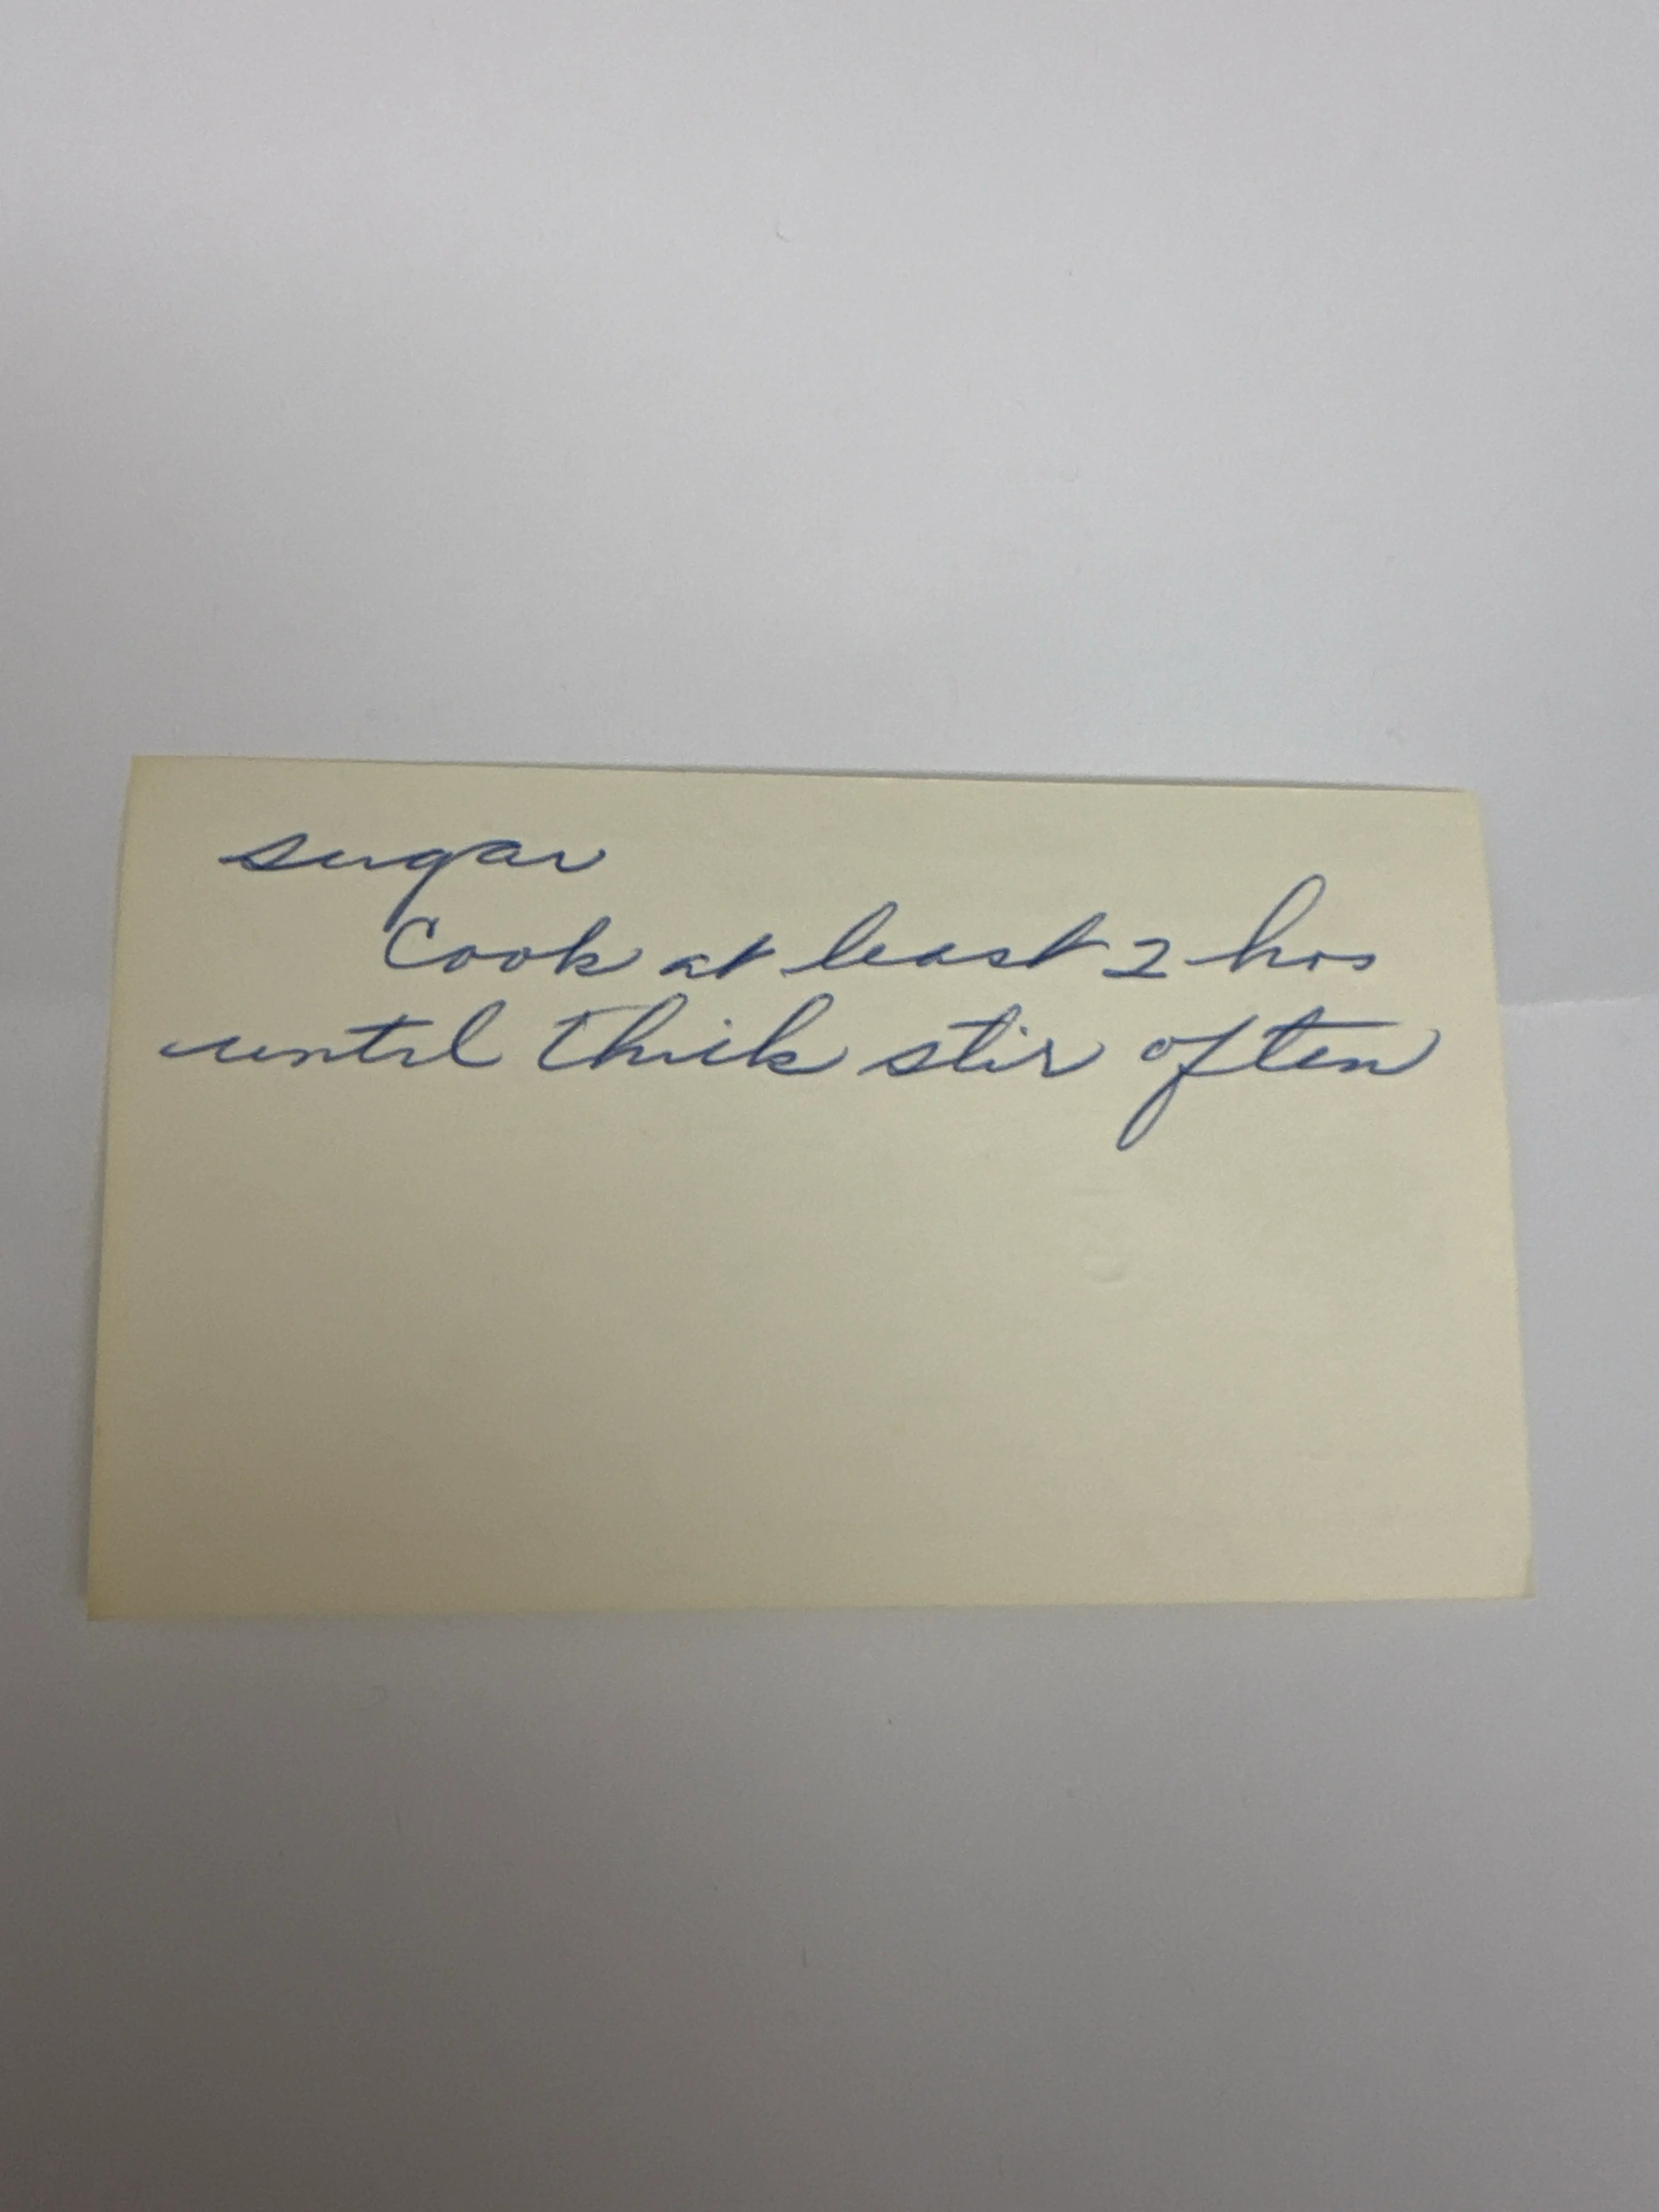 sugar
Cook at least 2 hrs
until thick stir often